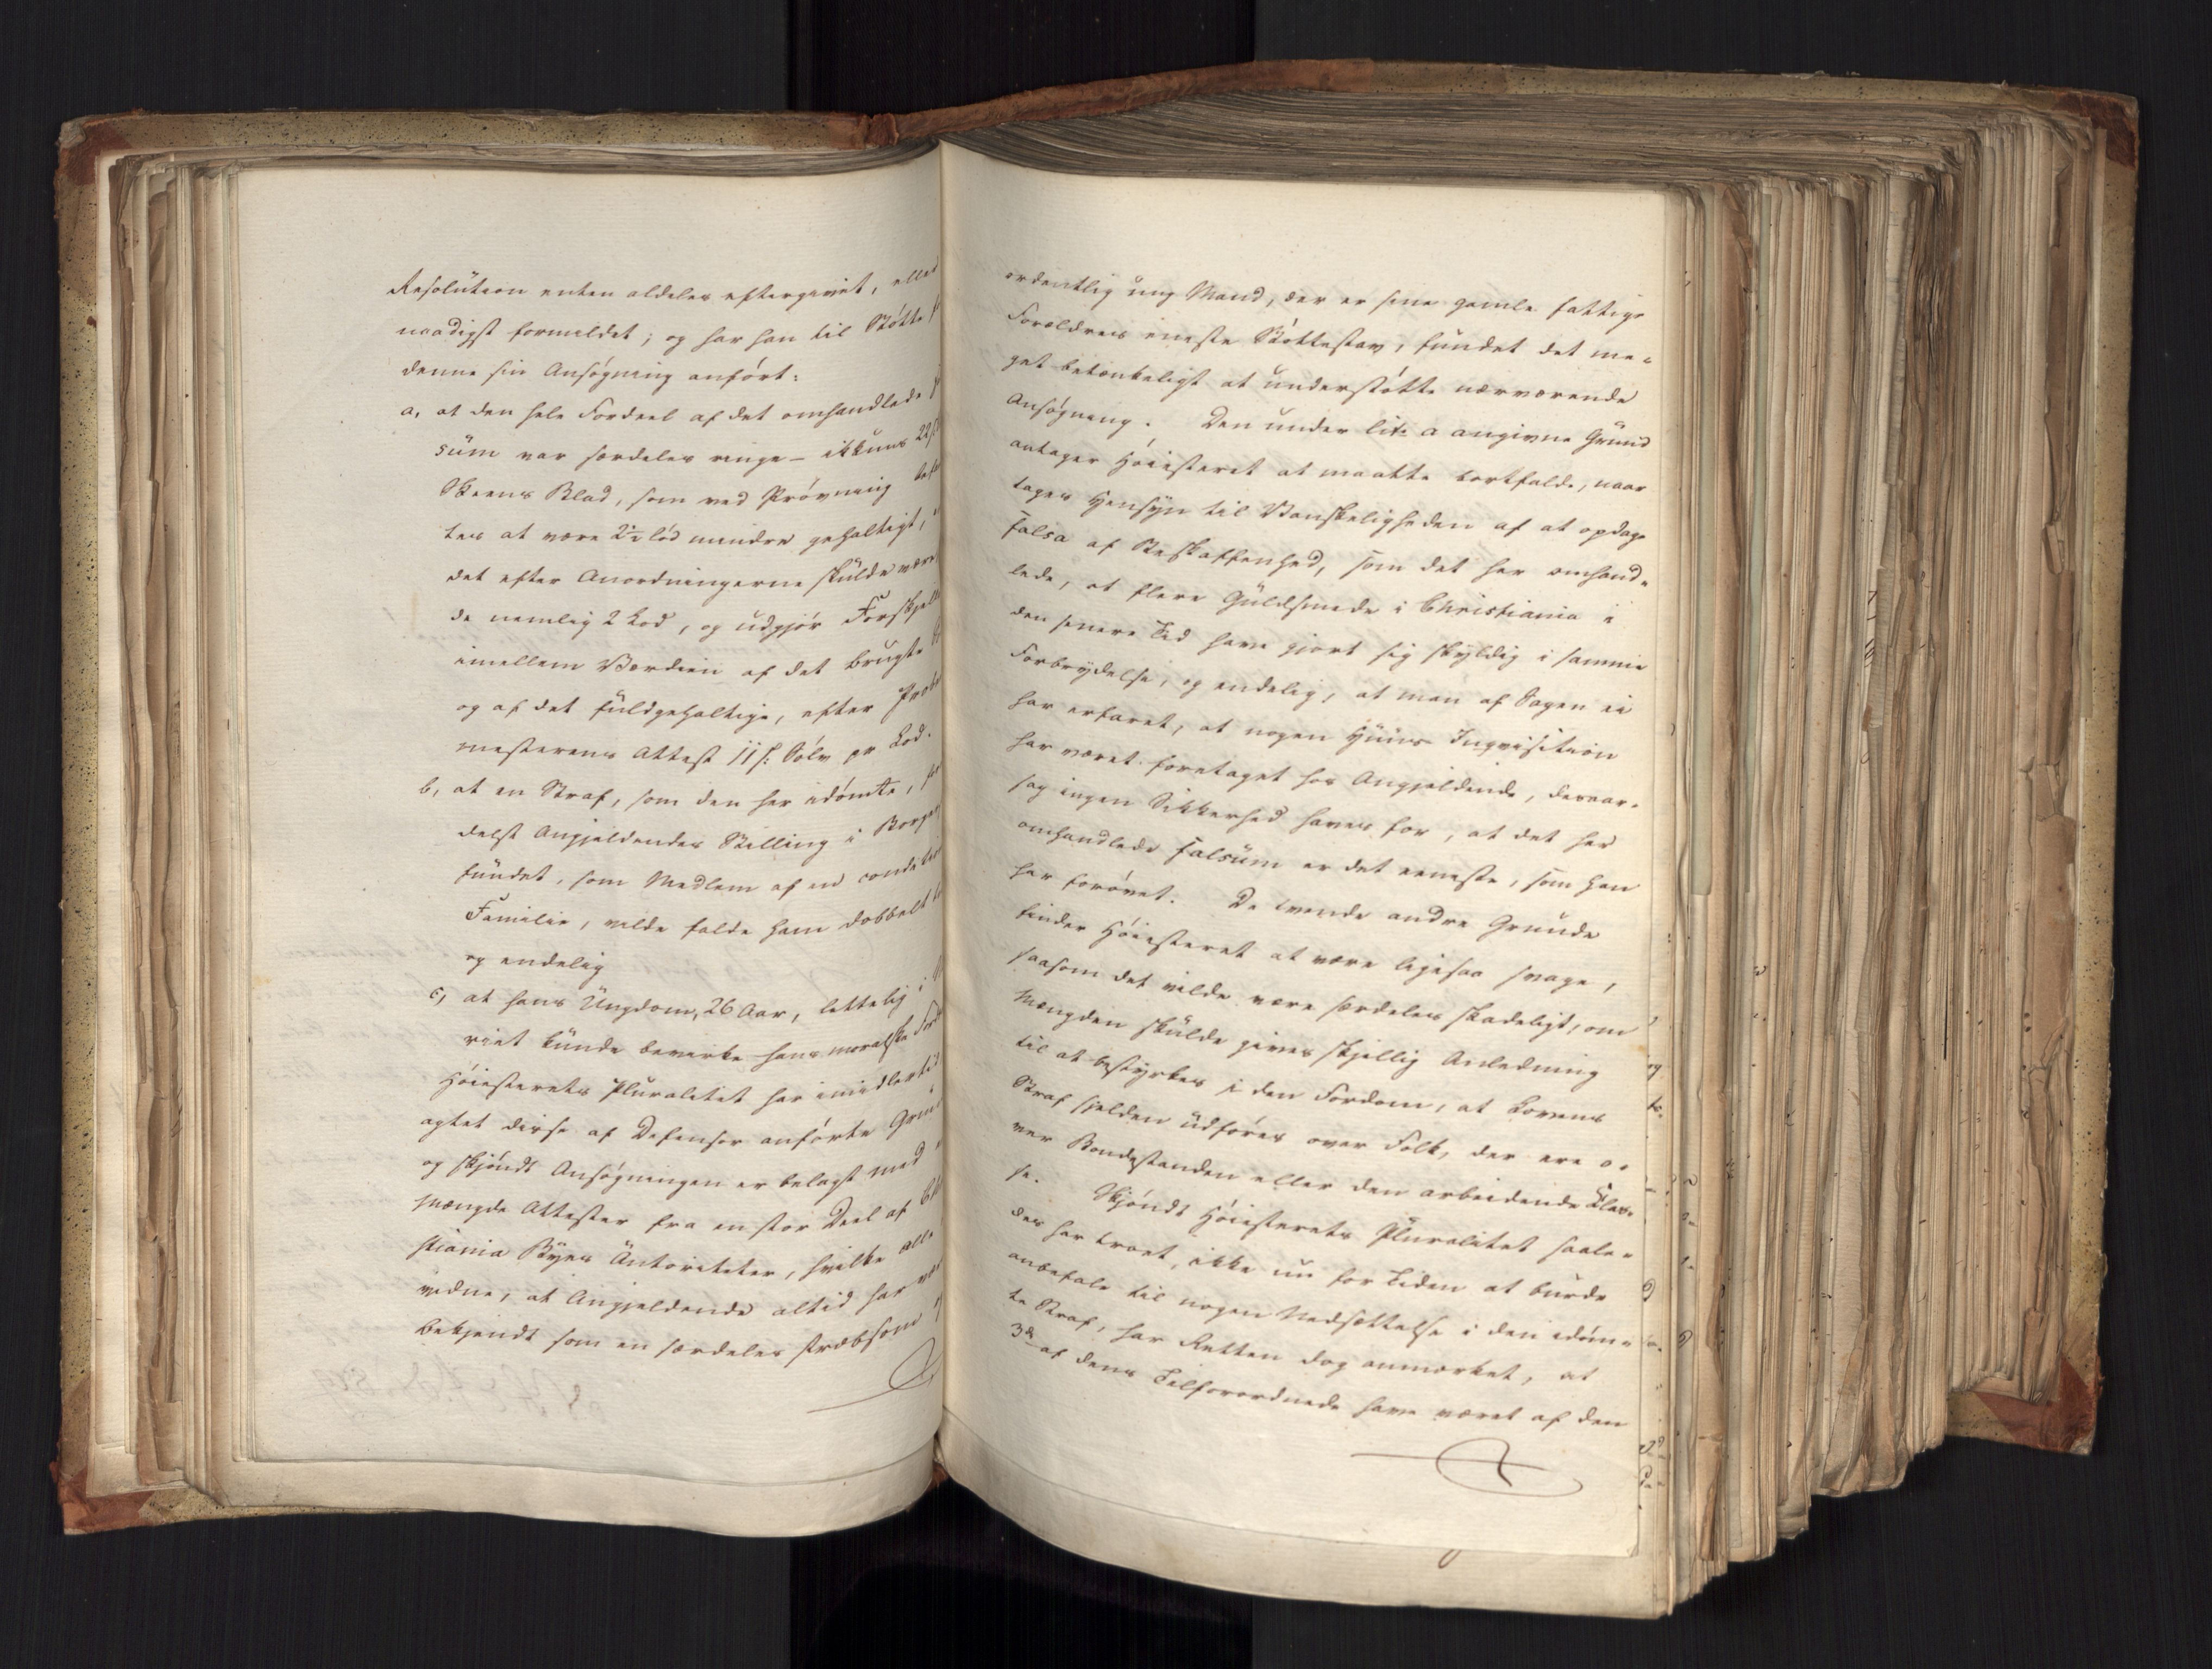 Resolution enten aldeles eftergivet, eller
naadigst formildet; og har han til Støtte
denne sin Ansøgning anført:
a, at den hele Fordeel af det omhandlede
sum var særdeles ringe – ikkuns
Skeens Blad, som ved Prøvning
tes at være 2½ Lod mindre gehaltigt,
det efter Anordningerne skulde være
de nemlig 2 Lod, og udgjør Forskjell
imellem Værdien af det brugte
og af det fuldgehaltige, efter
mesterens Attest 11 s: Sølv pr Lod.
b, at en Straf, som den her idømte,
delst Angjeldendes Stilling i
fundet, som Medlem af en
Familie, vilde falde ham dobbelt
og endelig
c, at hans Ungdom, 26 Aar, lettelig i
riet kunde bevirke hans moralske
Høiesterets Pluralitet har imidlertid
agtet disse af Defensor anførte
og skjøndt Ansøgningen er belagt med
Mængde Attester fra en stor Deel af
stiania Byes Autoriteter, hvilke alle
vidne, at Angjeldende altid har
bekjendt som en særdeles stræbsom
ordentlig ung Mand, der er sine gamle fattige
Forældres eneste Støttestav, fundet det me-
get betænkeligt at understøtte nærværende
Ansøgning. Den under lit: a angivne Grund
antager Høiesteret at maatte bortfalde, naar
tages Hensyn til Vanskeligheden af at opdage
falsa af Beskaffenhed, som det her omhand-
lede, at flere Guldsmede i Christiania i
den senere Tid have gjort sig skyldig i samme
Forbrydelse, og endelig, at man af Sagen ei
har erfaret, at nogen Huus Inqvisition
har været foretaget hos Angjeldende, desaar-
sag ingen Sikkerhed haves for, at det her
omhandlede falsum er det eeneste, som han
har forøvet. De tvende andre Grunde
finder Høiesteret at være ligesaa svage,
saasom det vilde være særdeles skadeligt, om
Mængden skulde gives skjellig Anledning
til at bestyrkes i den Fordom, at Lovens
Straf sjelden udføres over Folk, der ere o-
ver Bondestanden eller den arbeidende Klas-
se. Skjøndt Høiesterets Pluralitet saale-
des har troet, ikke nu for Tiden at burde
anbefale til nogen Nedsættelse i den idøm-
te Straf, har Retten dog anmærket, at
3de af dens Tilforordnede have været af den